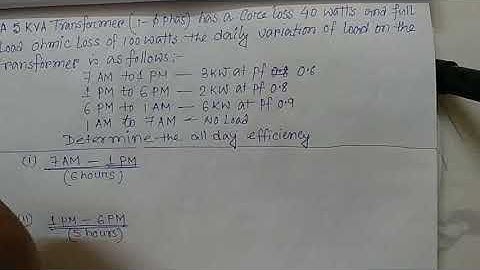 A 5 KVA Transformer (1-ϕ phas) has a Core loss 40 watts and full
Load ohmic Loss of 100 watts the daily variation of Load on the
transformer is as follows:-
7 AM to 1 PM — 3 KW at pf 0.6
1 PM to 6 PM — 2 KW at pf 0.8
6 PM to 1 AM — 6 KW at pf 0.9
1 AM to 7 AM — No Load
Determine the all day efficiency
(i) 7 AM — 1 PM
(6 hours)
(ii) 1 PM — 6 PM
(5 hours)